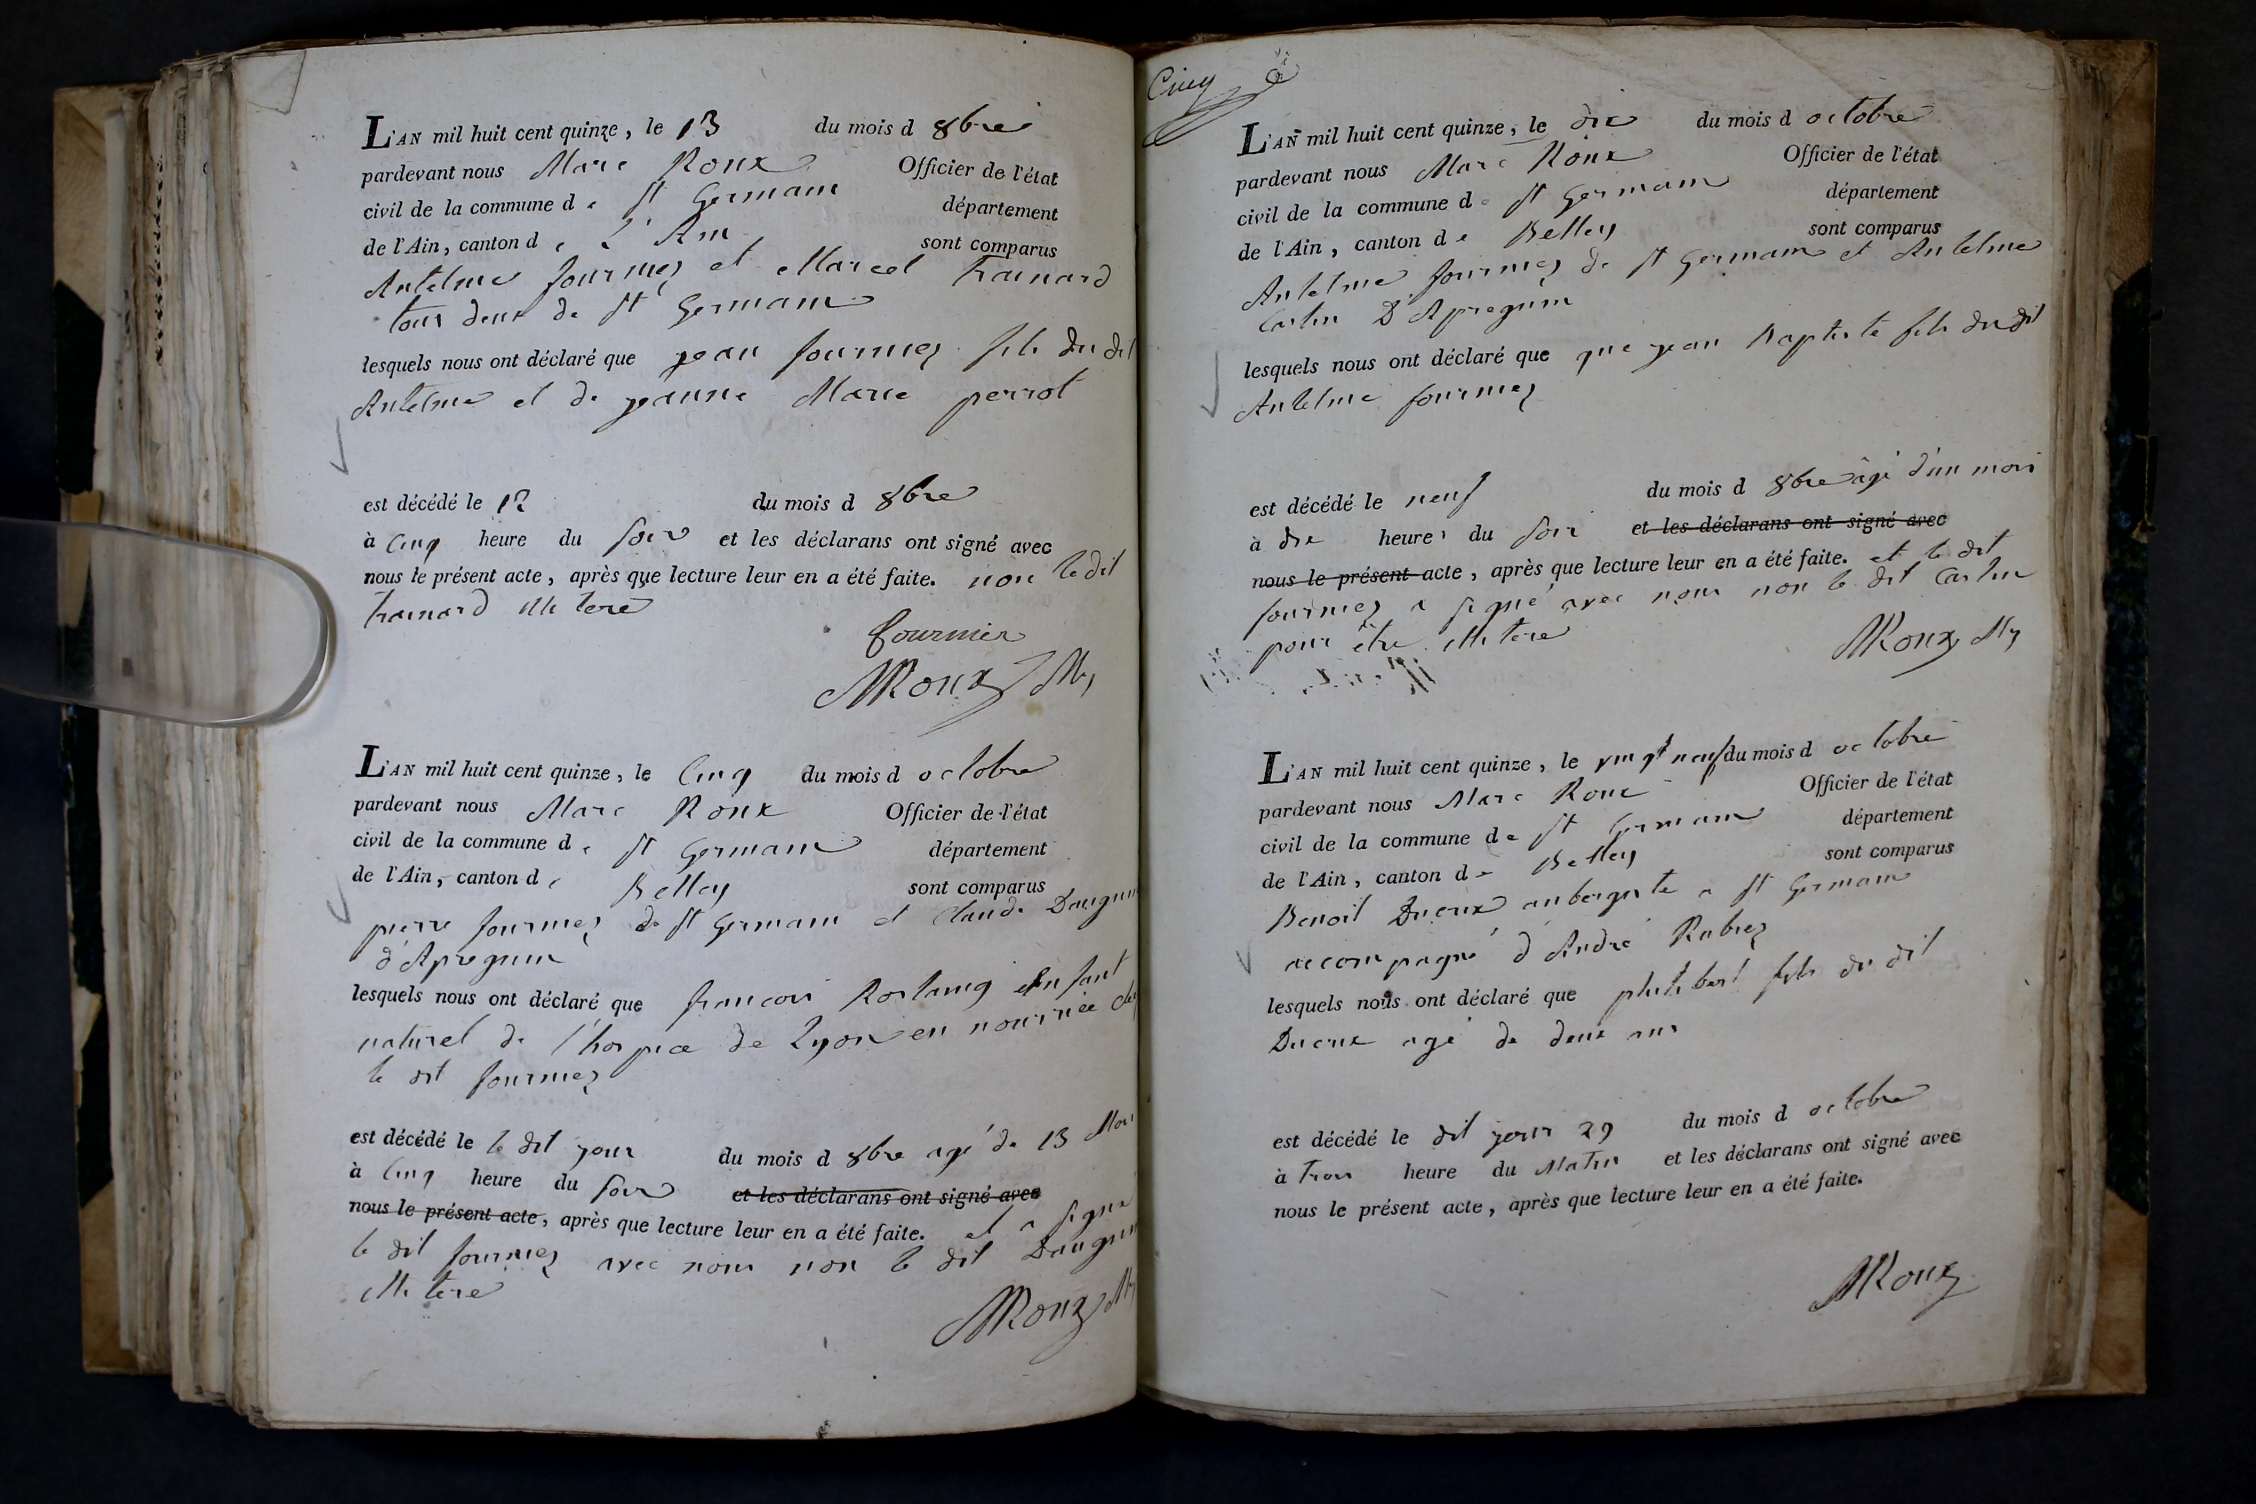 L'AN mil huit cent quinze, le 13 du mois d 8bre
pardevant nous Marc Roux Officier de l'état
civil de la commune de St Germain département
de l'Ain, canton de L'Ain sont comparus
Antelme fournier et Marcel trainard
tous deux de St Germain
lesquels nous ont déclaré que jean fournier fils du dit
Antelme et de jeanne Marie perrot
est décédé le 12 du mois d 8bre
à Cinq heure du soir et les déclarans ont signé avec
nous le présent acte, après que lecture leur en a été faite. non le dit
trainard illitere
fournier
MRoux
L'AN mil huit cent quinze, le Cinq du mois d octobre
pardevant nous Marc Roux Officier de l'état
civil de la commune de St Germain département
de l'Ain, canton de Belley sont comparus
pierre fournier de St Germain et Claude Dauguin
d'Apregnin
lesquels nous ont déclaré que francois enfant
naturel de l'hospice de Lyon en nourrice chez
le dit fournier
est décédé le le dit jour du mois d 8bre agé de 13 Mois
à Cinq heure du soir et les déclarans ont signé avec
nous le présent acte, après que lecture leur en a été faite. et a signé
le dit fournier avec nous non le dit Dauguin
illitere
MRoux
Cinq
L'AN mil huit cent quinze, le dix du mois d octobre
pardevant nous Marc Roux Officier de l'état
civil de la commune de St Germain département
de l'Ain, canton de Belley sont comparus
Antelme fournier de St Germain et Antelme
Carlin D'Apregnin
lesquels nous ont déclaré que que jean Baptiste fils du dit
Antelme fournier
est décédé le neuf du mois d 8bre âgé d'un mois
à dix heures du soir et les déclarans ont signé avec
nous le présent acte, après que lecture leur en a été faite. et le dit
fournier a signé avec nous non le dit Carlin
pour être illitere
MRoux
L'AN mil huit cent quinze, le vingt neuf du mois d octobre
pardevant nous Marc Roux Officier de l'état
civil de la commune de St Germain département
de l'Ain, canton de Belley sont comparus
Benoit Ducrux aubergiste a St Germain
accompagné d'André Rubiez
lesquels nous ont déclaré que philibert fils du dit
Ducrux agé de deux ans
est décédé le dit jour 29 du mois d octobre
à trois heure du Matin et les déclarans ont signé avec
nous le présent acte, après que lecture leur en a été faite.
MRoux